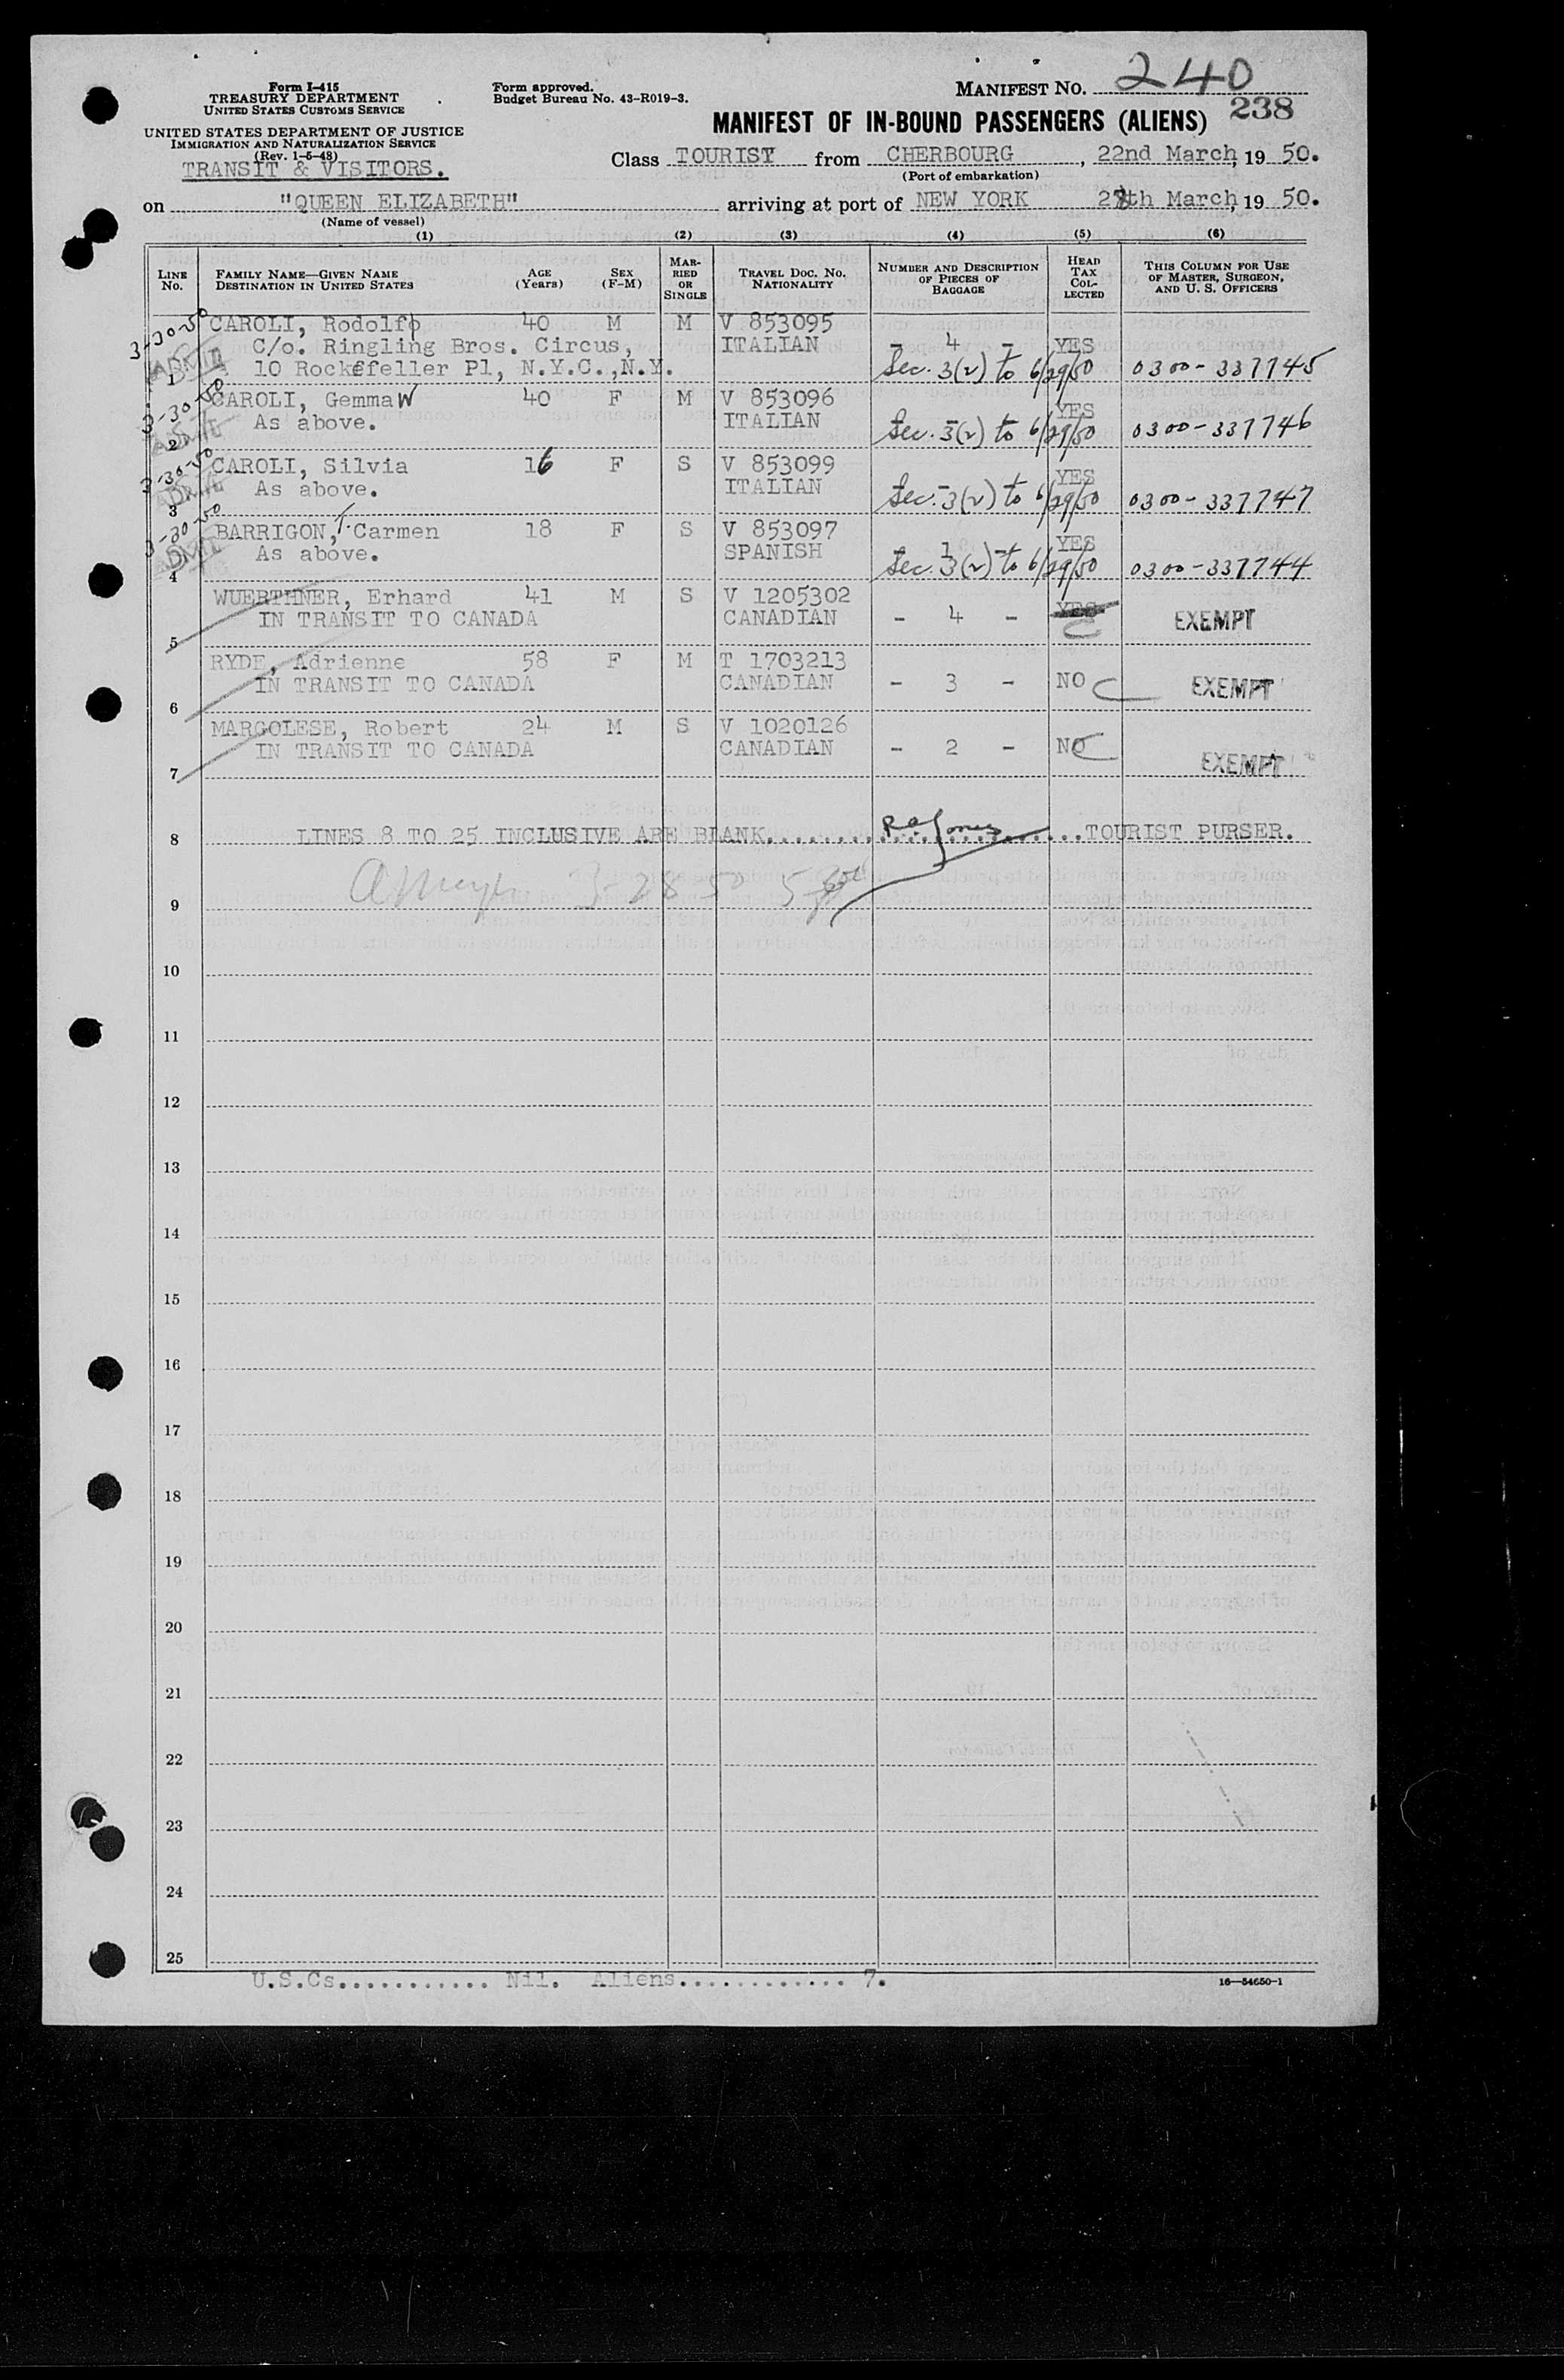 Form I-415
TREASURY DEPARTMENT
UNITED STATES CUSTOMS SERVICE
UNITED STATES DEPARTMENT OF JUSTICE
IMMIGRATION AND NATURALIZATION SERVICE
(Rev. 1-5-48)
TRANSIT & VISITORS.
Form approved.
Budget Bureau No. 43-R019-3.
MANIFEST NO. 240
238
MANIFEST OF IN-BOUND PASSENGERS (ALIENS)
Class TOURIST from CHERBOURG, 22nd March, 19 50.
(Port of embarkation)
on "QUEEN ELIZABETH" arriving at port of NEW YORK 28th March, 19 50.
(Name of vessel)
(1) (2) (3) (4) (5) (6)
LINE NO. FAMILY NAME—GIVEN NAME DESTINATION IN UNITED STATES AGE (Years) SEX (F-M) MARRIED OR SINGLE TRAVEL DOC. NO. NATIONALITY NUMBER AND DESCRIPTION OF PIECES OF BAGGAGE HEAD TAX COLLECTED THIS COLUMN FOR USE OF MASTER, SURGEON, AND U. S. OFFICERS
3-30-50 CAROLI, Rodolfo 40 M M V 853095
C/o. Ringling Bros. Circus, ITALIAN - 4 - YES
ADMIT
1 10 Rockefeller Pl, N.Y.C.,N.Y. Sec. 3(2) to 6/29/50 0300-337745
3-30-50 CAROLI, Gemma W 40 F M V 853096
ADMIT As above. ITALIAN YES
2 Sec. 3(2) to 6/29/50 0300-337746
3-30-50 CAROLI, Silvia 16 F S V 853099
ADMIT As above. ITALIAN YES
3 Sec. 3(2) to 6/29/50 0300-337747
3-30-50 BARRIGON, Carmen 18 F S V 853097
ADMIT As above. SPANISH 1 - YES
4 Sec. 3(2) to 6/29/50 0300-337744
WUERTHNER, Erhard 41 M S V 1205302 YES
5 IN TRANSIT TO CANADA CANADIAN - 4 - C EXEMPT
RYDE, Adrienne 58 F M T 1703213
6 IN TRANSIT TO CANADA CANADIAN - 3 - NO C EXEMPT
MARGOLESE, Robert 24 M S V 1020126
7 IN TRANSIT TO CANADA CANADIAN - 2 - NO C EXEMPT
8 LINES 8 TO 25 INCLUSIVE ARE BLANK........ RaJones ...TOURIST PURSER.
3-28-50
9
10
11
12
13
14
15
16
17
18
19
20
21
22
23
24
25
U.S.Cs........... Nil. Aliens............ 7.
16—54650-1